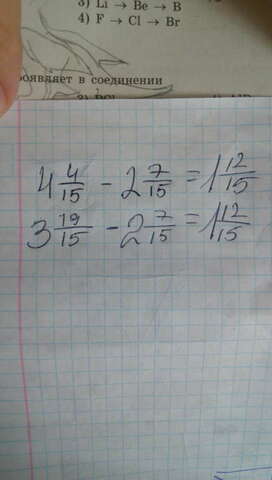 3) Li → Be → B
4) F → Cl → Br
роявляет в соединении
4 4/15 - 2 7/15 = 1 12/15
3 19/15 - 2 7/15 = 1 12/15